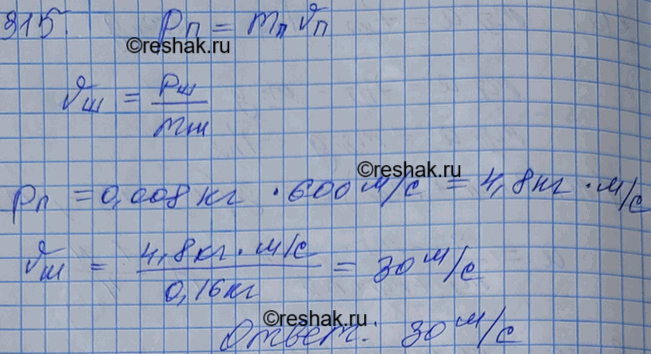 315. Pп = mп υп
©reshak.ru
υш = Pш / mш
©reshak.ru
Pп = 0,008 кг · 600 м/с = 4,8 кг · м/с
υш = 4,8 кг · м/с / 0,16 кг = 30 м/с
©reshak.ru
Ответ: 30 м/с